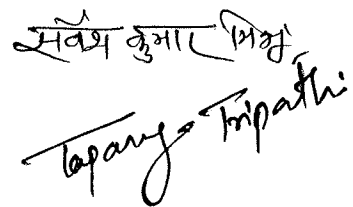 सर्वेश कुमार मिश्र
Tapany Tripathi